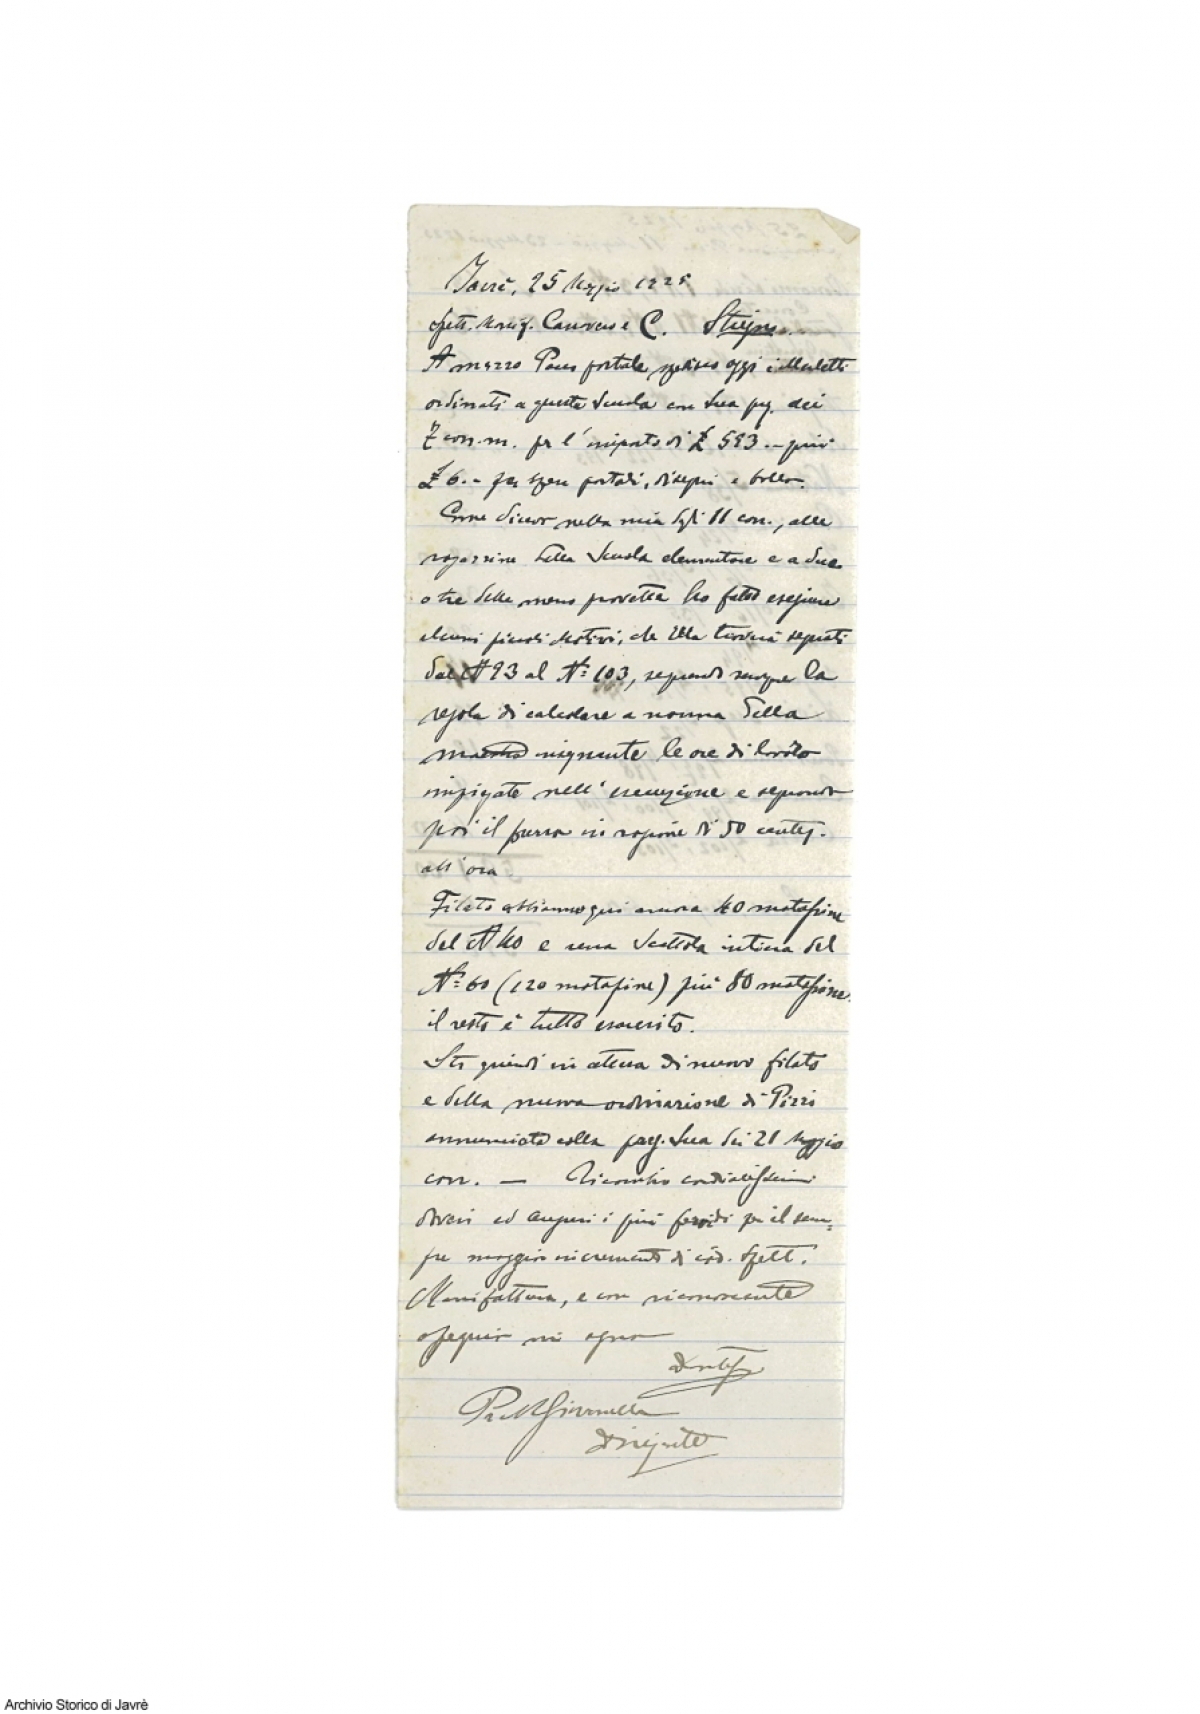 Javrè, 25 Maggio 1925
Spett. Manif. Canovaso e C.
A mezzo Pacco postale spedisco oggi i Merletti
ordinati a questa Scuola con Sua preg. dei
7 corr. m. per l'importo di £ 593.— più
£ 6.— per spese postali, disegni e bollo.
Come dicevo nella mia degli 11 corr., alle
ragazzine della Scuola elementare e a due
o tre delle meno provette ho fatto eseguire
alcuni piccoli Motivi, che Ella troverà segnati
dal N 93 al Nº 103, seguendo sempre la
regola di calcolare a norma della
maestra insegnante le ore di lavoro
impiegate nell'esecuzione e segnando
poi il prezzo in ragione di 50 centes.
all'ora
Filato abbiamo qui ancora 40 matassine
del N 40 e una Scattola intiera del
Nº 60 (120 matassine) più 80 matassine.
il resto è tutto esaurito.
Sto quindi in attesa di nuovo filato
e della nuova ordinazione di Pizzi
annunciata colla preg. Sua dei 21 Maggio
corr. — Ricambio cordialissimi
doveri ed auguri i più fervidi per il sem-
pre maggior incremento di cod. Spett.
Manifattura, e con riconoscente
ossequio mi segno
Giovanella
Dirigente
Archivio Storico di Javrè